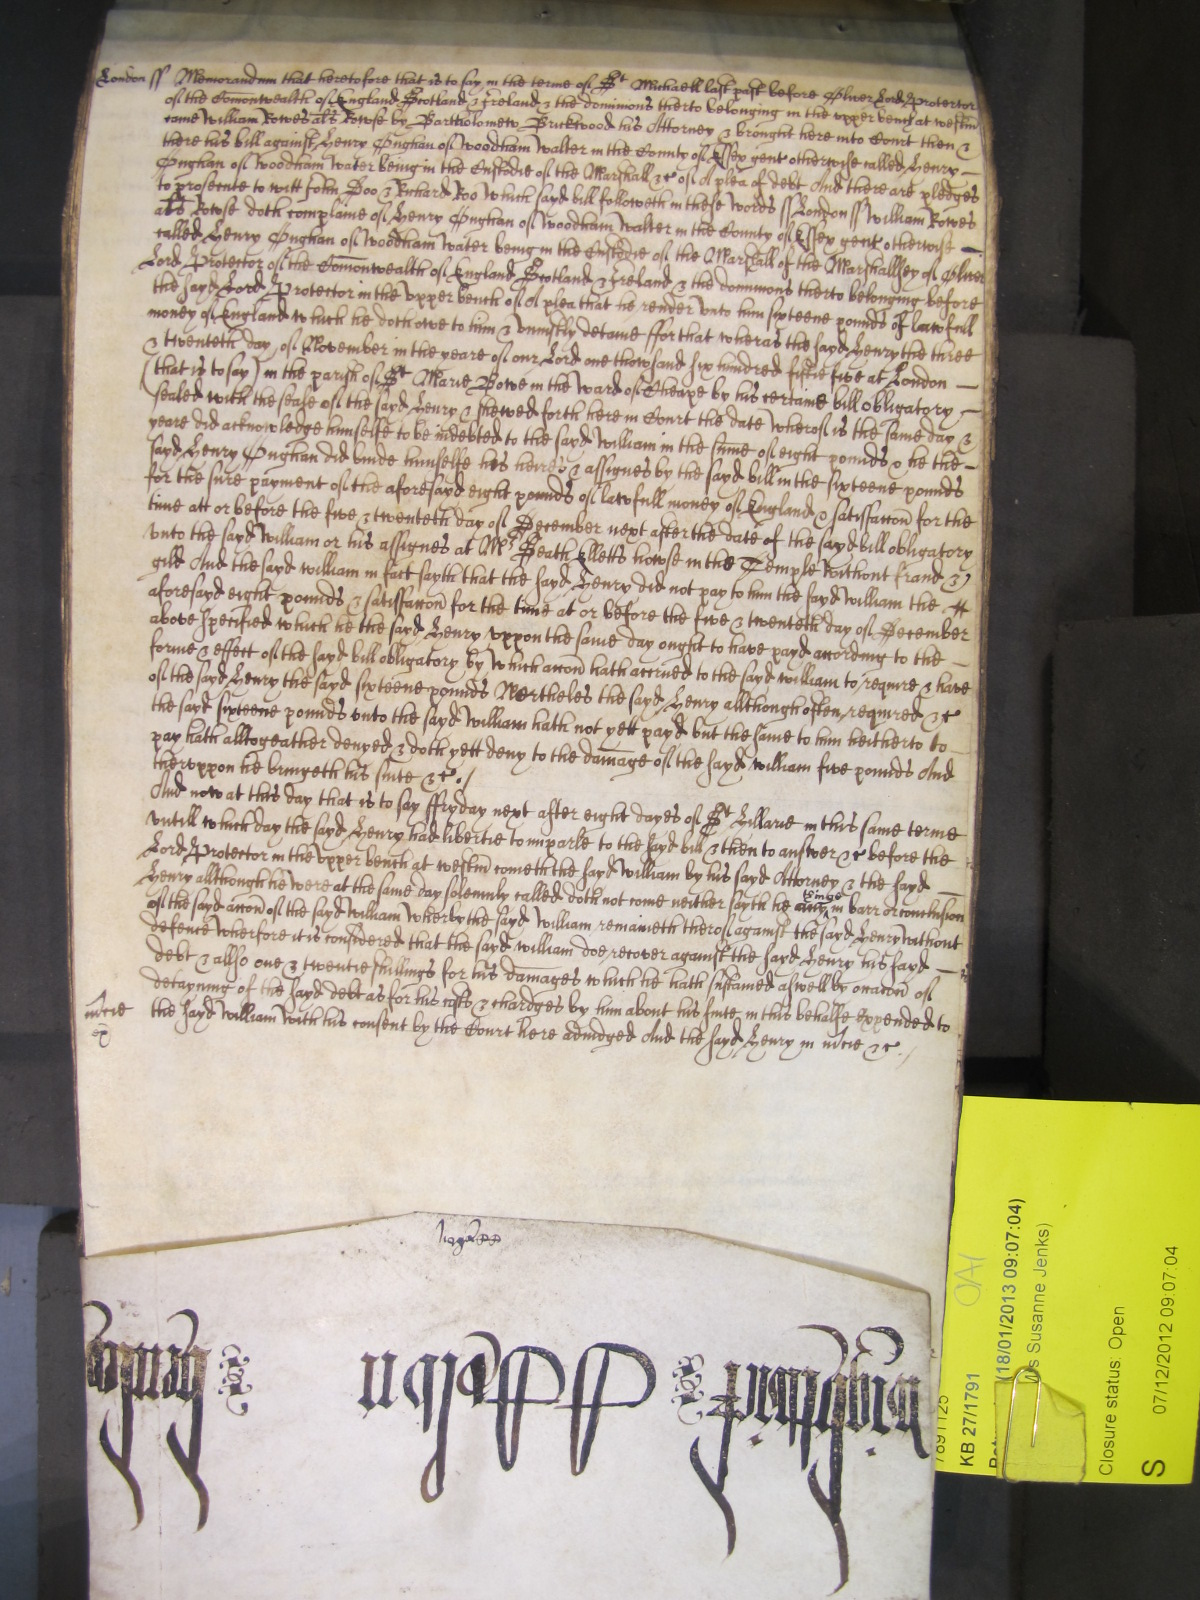 London ss Memorandum that heretofore that is to say in the terme of St Michaell last past before Oliver Lord Protector
of the Com̃onwealth of England Scotland & Ireland & the dominions therto belonging in the upper bench at westm̃
came William Rowes als Rowse by Bartholomew Brickwood his Attorney & brought here into Court then &
there his bill against Henry Onghan of Woodham Walter in the County of Essex gent otherwise called Henry
Onghan of Woodham Water being in the Custodie of the Marshall &c of A plea of debt And there are pledges
to prosecute to witt John Doo & Richard Roo Which sayd bill followeth in these words ss London ss William Rowes
als Rowse doth complaine of Henry Onghan of Woodham Walter in the County of Essex gent otherwise
called Henry Onghan of Woodham Water being in the Custodie of the Marshall of the Marshallsey of Oliver
Lord Protector of the Com̃onwealth of England Scotland & Ireland & the dominions therto belonging before
the sayd Lord Protector in the upper bench of A plea that he render unto him sixteene pounds of lawfull
money of England which he doth owe to him & uniustly detaine ffor that wheras the sayd Henry the three
& twenteth day of November in the yeare of our Lord one thowsand six hundred fiftie five at London
(that is to say) in the parish of St Marie Bowe in the ward of Cheape by his certaine bill obligatory
sealed with the seale of the sayd Henry & shewed forth here in Court the date wherof is the same day &
yeare did acknowledge himselfe to be indebted to the sayd William in the sum̃e of eight pounds & he the
sayd Henry Onghan did binde himselfe his heires & assignes by the sayd bill in the sixteene pounds
for the sure payment of the aforesayd eight pounds of lawfull money of England & satisfaccoñ for the
time att or before the five & twenteth day of December next after the date of the sayd bill obligatory
unto the sayd William or his assignes at Mrs Heath Elletts howse in the Temple Without fraud &
gile And the sayd william in fact sayth that the sayd Henry did not pay to him the sayd William the
aforesayd eight pounds & satisfaccoñ for the time at or before the five & twenteth day of December
above specified which he the sayd Henry uppon the same day ought to have payd according to the
forme & effect of the sayd bill obligatory by which accoñ hath accrued to the sayd william to require & have
of the sayd Henry the sayd sixteene pounds Nertheles the sayd Henry allthough often required &c
the sayd sixteene pounds unto the sayd William hath not yett payd but the same to him heitherto to
pay hath alltogeather denyed & doth yett deny to the damage of the sayd william five pounds And
theruppon he bringeth his suite &c./
And now at this day that is to say ffryday next after eight dayes of St Hillarie in this same terme
untill which day the sayd Henry had libertie to imparle to the sayd bill & then to answer &c before the
Lord Protector in the upper bench at westm̃ cometh the sayd William by his sayd Attorney & the sayd
Henry allthough he were at the same day solemnly called doth not come neither sayth he any thinge in barr or conclusion
of the sayd accoñ of the sayd William Wherby the sayd William remaineth therof against the sayd Henry Without
defence Wherfore it is considered that the sayd william doe recover against the sayd Henry his sayd
debt & allso one & twentie shillings for his damages which he hath sustained aswell by occacoñ of
detayning of the sayd debt as for his costs & chardges by him about his suite in this behalfe expended to
m̃cie the sayd William With his consent by the Court here adiudged And the sayd Henry in m̃cie &c./
KB 27/1791
(18/01/2013 09:07:04)
Susanne Jenks)
Closure status: Open
S 07/12/2012 09:07:04